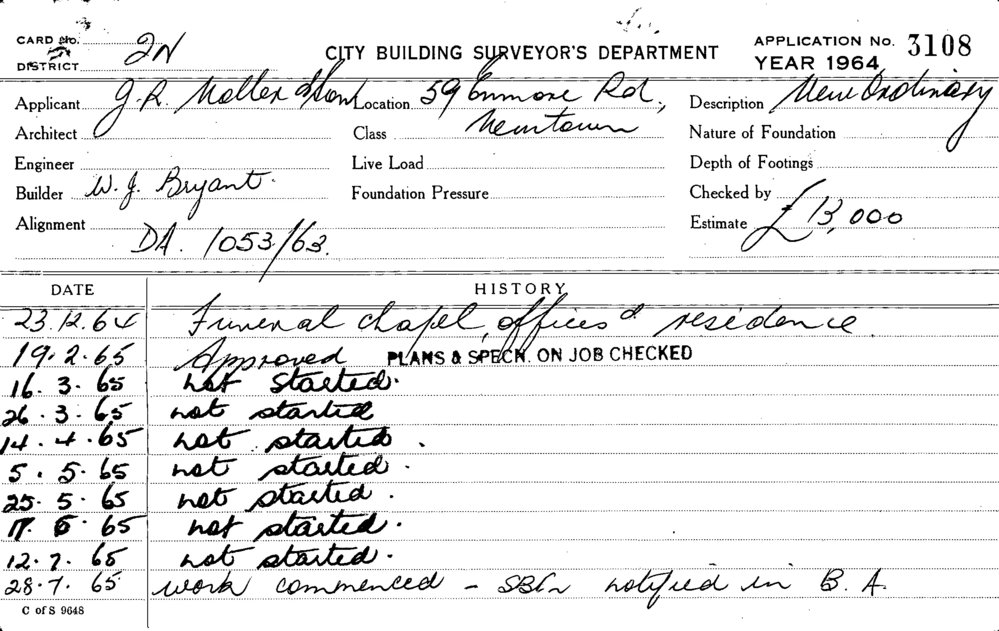 CARD No. 2N CITY BUILDING SURVEYOR'S DEPARTMENT APPLICATION No. 3108
DISTRICT YEAR 1964
Applicant J. R. Moller & Son Location 59 Enmore Rd., Description New Ordinary
Architect Class Newtown Nature of Foundation
Engineer Live Load Depth of Footings
Builder W. J. Bryant. Foundation Pressure Checked by
Alignment Estimate £13,000
DA. 1053/63.
DATE HISTORY
23.12.64 Funeral chapel, offices & residence.
19.2.65 Approved PLANS & SPECN. ON JOB CHECKED
16.3.65 not started.
26.3.65 not started
14.4.65 not started.
5.5.65 not started.
25.5.65 not started.
17.6.65 not started.
12.7.65 not started.
28.7.65 work commenced - notified in B.A.
C of S 9648